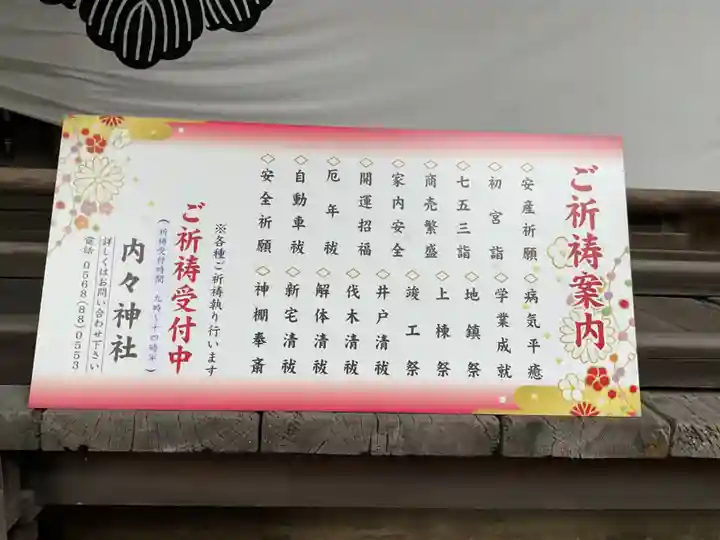 ご祈祷案内
◇安産祈願
◇病気平癒
◇初宮詣
◇学業成就
◇七五三詣
◇地鎮祭
◇商売繁盛
◇上棟祭
◇家内安全
◇竣工祭
◇開運招福
◇井戸清祓
◇厄年祓
◇伐木清祓
◇自動車祓
◇解体清祓
◇安全祈願
◇新宅清祓
◇神棚奉斎
※各種ご祈祷執り行います
ご祈祷受付中
(祈祷受付時間 九時~十四時半)
内々神社
詳しくはお問い合わせ下さい
電話 0568(88)0553